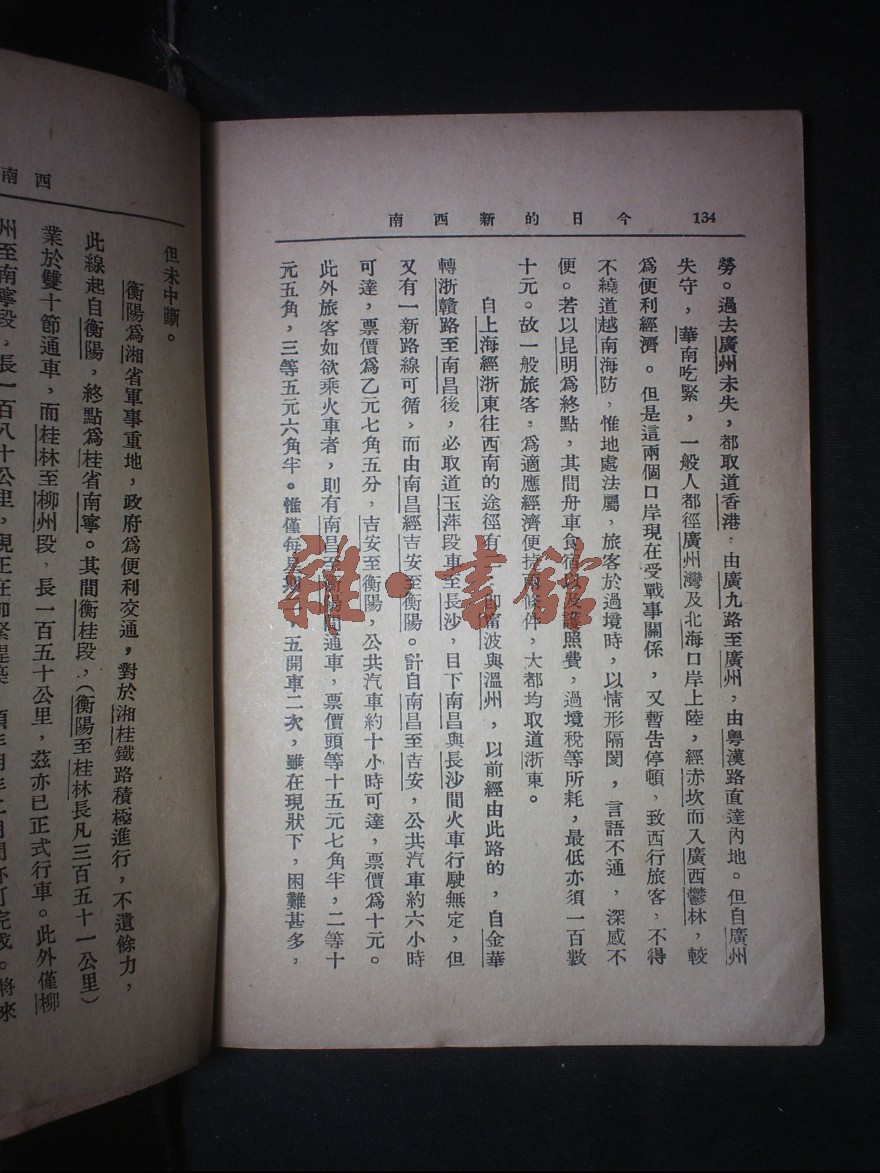 134 今日的新西南
勞。過去廣州未失，都取道香港，由廣九路至廣州，由粵漢路直達內地。但自廣州
失守，華南吃緊，一般人都徑廣州灣及北海口岸上陸，經赤坎而入廣西鬱林，較
為便利經濟。但是這兩個口岸現在受戰事關係，又暫告停頓，致西行旅客，不得
不繞道越南海防，惟地處法屬，旅客於過境時，以情形隔閡，言語不通，深感不
便。若以昆明為終點，其間舟車食宿以及護照費，過境稅等所耗，最低亦須一百數
十元。故一般旅客，為適應經濟便捷兩條件，大都均取道浙東。
自上海經浙東往西南的途徑有二，即甯波與溫州，以前經由此路的，自金華
轉浙贛路至南昌後，必取道玉萍段車至長沙，目下南昌與長沙間火車行駛無定，但
又有一新路線可循，而由南昌經吉安至衡陽。計自南昌至吉安，公共汽車約六小時
可達，票價為乙元七角五分，吉安至衡陽，公共汽車約十小時可達，票價為十元。
此外旅客如欲乘火車者，則有南昌至衡陽間通車，票價頭等十五元七角半，二等十
元五角，三等五元六角半。惟僅每星期一五開車二次，雖在現狀下，困難甚多，
西南
但未中斷。
衡陽為湘省軍事重地，政府為便利交通，對於湘桂鐵路積極進行，不遺餘力，
此線起自衡陽，終點為桂省南寧。其間衡桂段，（衡陽至桂林長凡三百五十一公里）
業於雙十節通車，而桂林至柳州段，長一百五十公里，茲亦已正式行車。此外僅柳
州至南寧段，長一百八十公里，現正在加緊建築
雜·書館